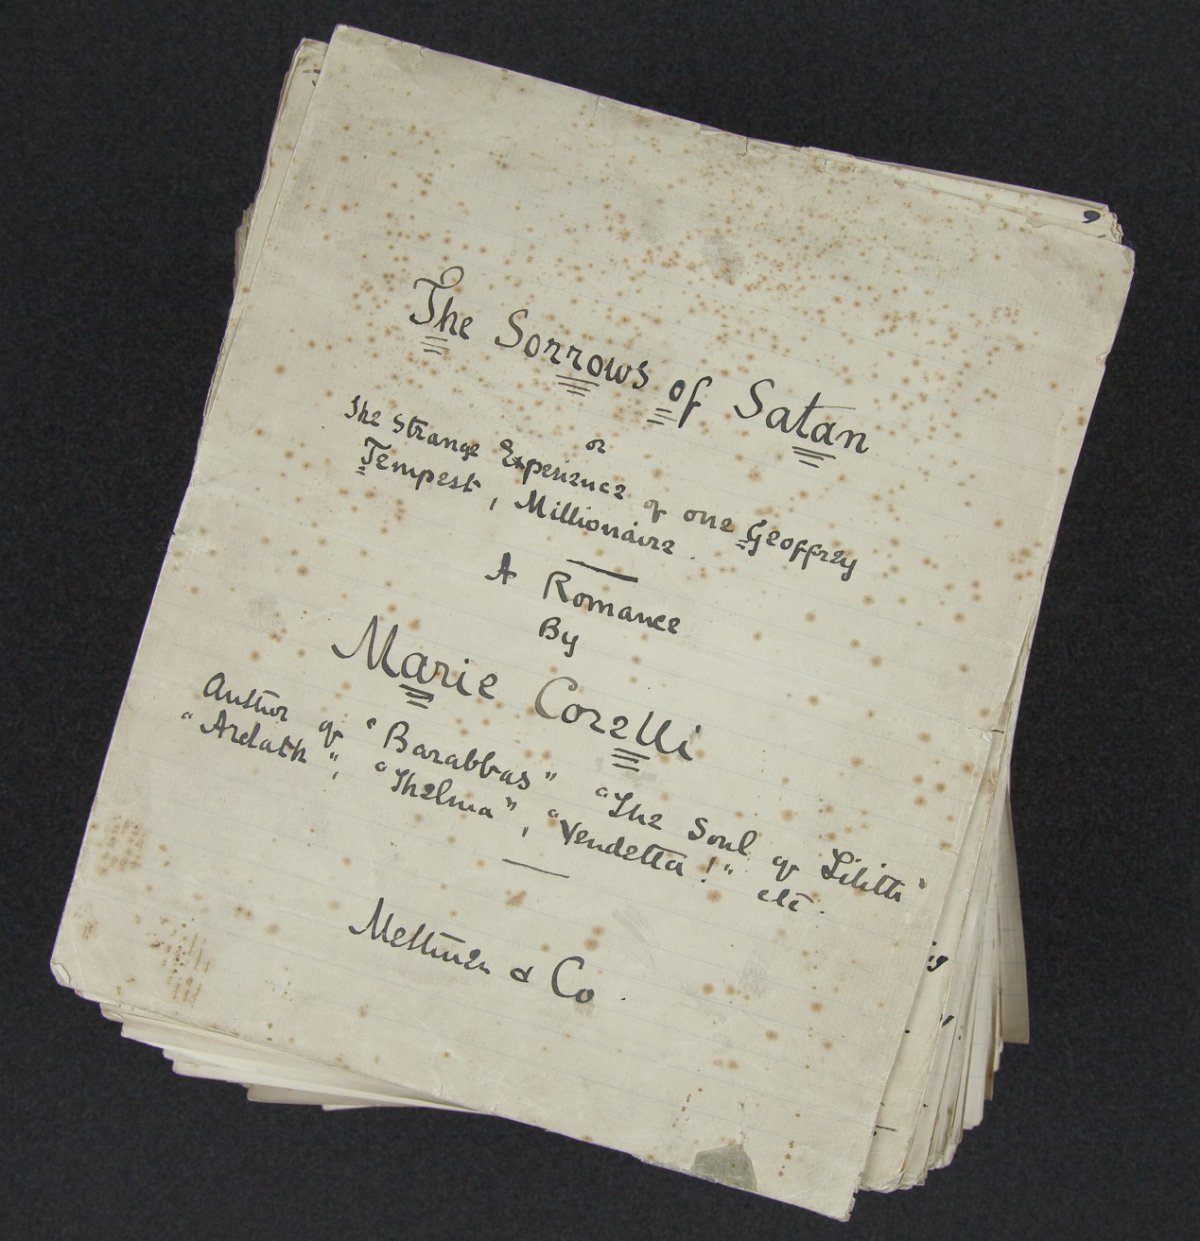 The Sorrows of Satan
or
The Strange Experience of one Geoffrey
Tempest, Millionaire.
A Romance
By
Marie Corelli
Author of "Barabbas" "The Soul of Lilith"
"Ardath", "Thelma", "Vendetta!" etc.
Methuen & Co.